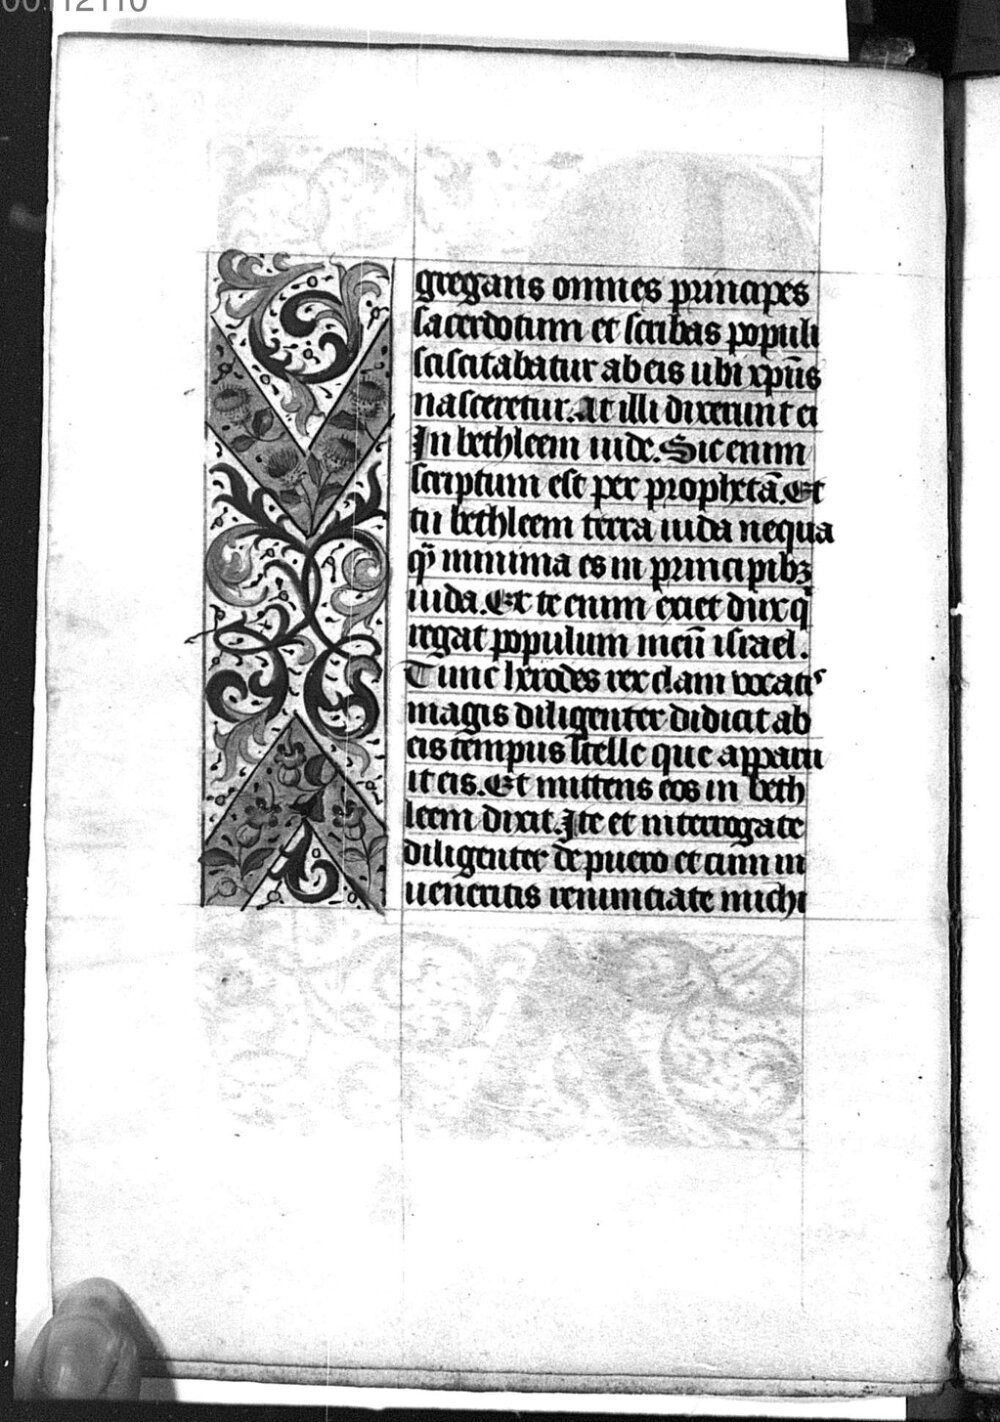 00112110
gregans omnes principes
sacerdotum et scribas populi
sciscitabatur ab eis ubi xp̄us
nasceretur. At illi dixerunt ei
In bethleem iude. Sic enim
scriptum est per prophetā. Et
tu bethleem terra iuda nequa
q̄ minima es in principibꝫ
iuda. Ex te enim exiet dux q̄
regat populum meū israel.
Tunc herodes rex clam vocatis
magis diligenter didicit ab
eis tempus stelle que apparu
it eis. Et mittens eos in beth
leem dixit. Ite et interrogate
diligenter de puero et cum in
veneritis renunciate michi